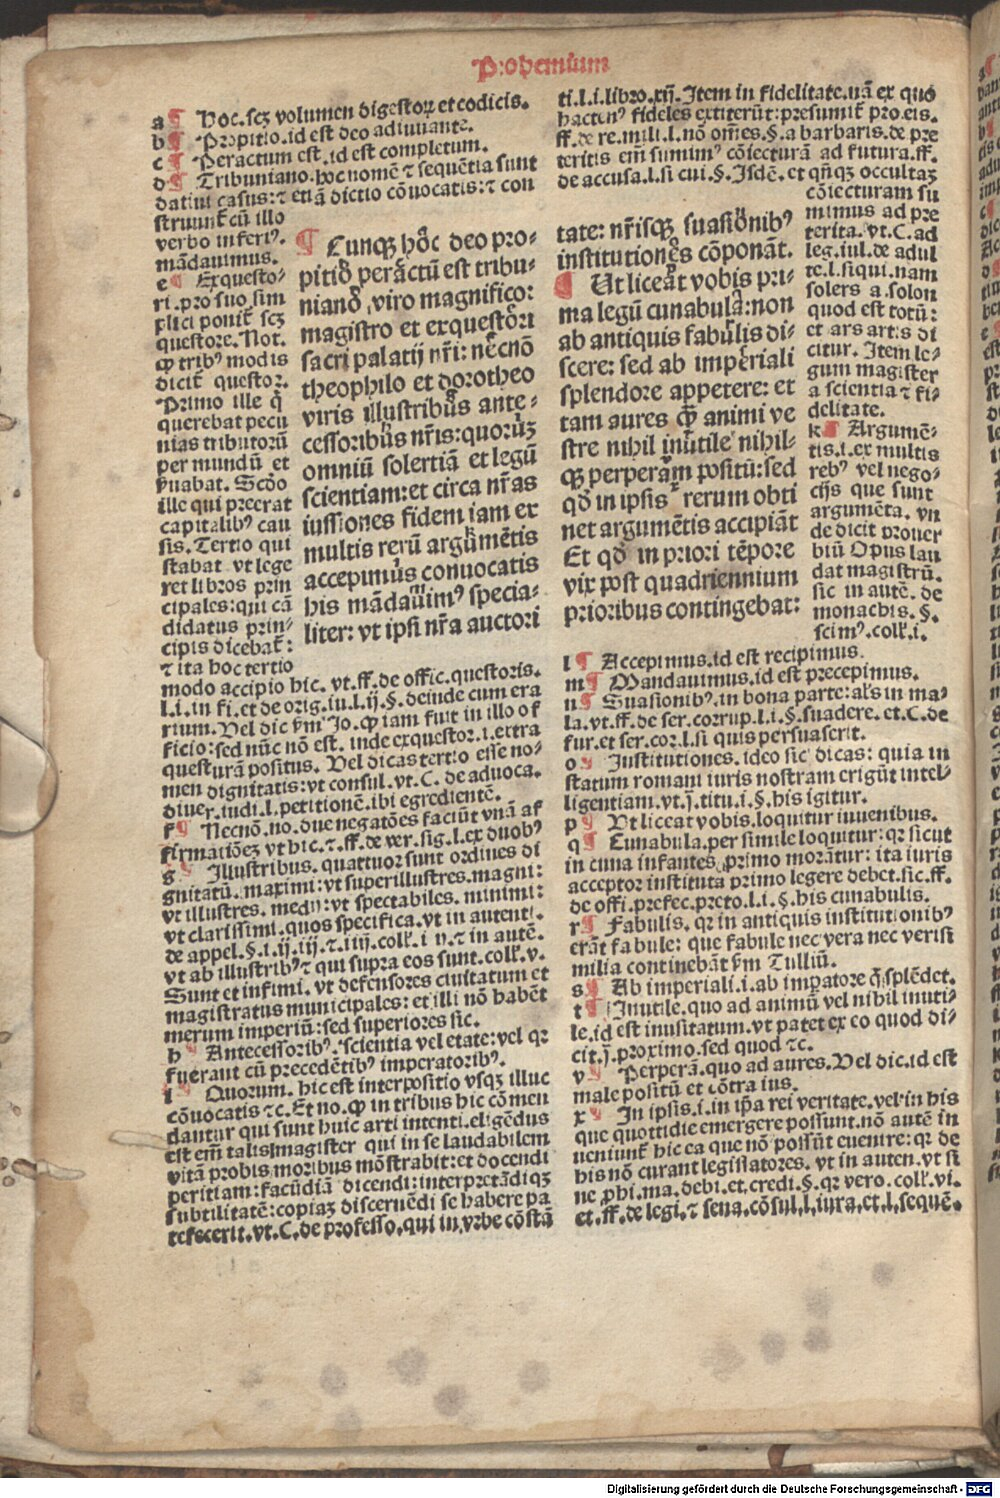 Prohemium
a ¶ Hoc.scꝫ volumen digestoꝝ et codicis.
b ¶ Propitio.id est deo adiuuante.
c ¶ Peractum est.id est completum.
d ¶ Tribuniano.hoc nomē ⁊ sequētia sunt
datiui casus:⁊ etiā dictio cōuocatis:⁊ con
struunt̄ cū illo
verbo inferiꝰ.
mādauimus.
e ¶ Exquesto-
ri.pro suo sim
plici ponit̄ scꝫ
questore.Not.
ꝙ tribꝰ modis
dicit̄ questor.
Primo ille q̄
querebat pecu
nias tributorū
per mundū et
ẜuabat. Scd̄o
ille qui preerat
capitalibꝰ cau
sis.Tertio qui
stabat vt lege
ret libros prin
cipales:qui cā
didatus prin-
cipis dicebat̄:
⁊ ita hoc tertio
modo accipio hic.vt.ff.de offic.questoris.
l.i.in fi.et de orig.iu.l.ij.§.deinde cum era
rium.Uel dic ẜm Jo.ꝙ iam fuit in illo of
ficio:sed nūc nō est. inde exquestor.i.extra
questurā positus. Uel dicas tertio esse no-
men dignitatis:vt consul.vt.C. de aduoca.
diuer.iudi.l.petitionē.ibi egredientē.
f ¶ Necnō.no.due negatōes faciūt vnā af
firmatiōeꝫ vt hic.⁊.ff.de ver.sig.l.ex duobꝰ
g ¶ Illustribus. quattuor sunt ordines di
gnitatū.maximi:vt superillustres.magni:
vt illustres. medij:vt spectabiles. minimi:
vt clarissimi.quos specifica.vt in autenti.
de appel.§.i.ij.iij.⁊.iiij.coll̄.i ij.⁊ in autē.
vt ab illustribꝰ ⁊ qui supra eos sunt.coll̄.v.
Sunt et infimi. vt defensores ciuitatum et
magistratus municipales: et illi nō habēt
merum imperiū:sed superiores sic.
h ¶ Antecessoribꝰ. scientia vel etate:vel qꝛ
fuerant cū precedētibꝰ imperatoribꝰ.
i ¶ Quorum. hic est interpositio vsqꝫ illuc
cōuocatis ⁊c.Et no.ꝙ in tribus hic cōmen
dantur qui sunt huic arti intenti.eligēdus
est em̄ talis magister qui in se laudabilem
vitā probis moribus mōstrabit:et docendi
peritiam:facūdiā dicendi:interpretādiqꝫ
subtilitatē:copiaꝫ discernēdi se habere pa
tefecerit.vt.C.de professo.qui in vrbe cōstā
¶ Cunqꝫ hoc deo pro-
pitio peractū est tribu-
niano viro magnifico:
magistro et exquestori
sacri palatij nr̄i: necnō
theophilo et dorotheo
viris illustribus ante-
cessoribus nr̄is:quorūꝫ
omniū solertiā et legū
scientiam:et circa nr̄as
iussiones fidem iam ex
multis rerū argumētis
accepimus conuocatis
his mādauimꝰ specia-
liter: vt ipsi nr̄a auctori
ti.l.i.libro.xij.Item in fidelitate.nā ex quo
hactenꝰ fideles extiterūt:presumit̄ pro eis.
ff.de re.mili.l.nō om̄es.§.a barbaris.de pre
teritis em̄ sumimꝰ cōiecturā ad futura.ff.
de accusa.l.si cui.§.Iisdē. et qn̄qꝫ occultaꝫ
cōiecturam su
mimus ad pre
terita.vt.C.ad
leg.iul.de adul
te.l.siqui.nam
solers a.solon
quod est totū:
et ars artis di
citur. Item le-
gum magister
a scientia ⁊ fi-
delitate.
k ¶ Argumē-
tis.i.ex multis
rebꝰ vel nego-
cijs que sunt
argumēta. vn
de dicit prouer
biū Opus lau
dat magistrū.
sic in autē. de
monachis. §.
scimꝰ.coll̄.i.
tate: nr̄isqꝫ suasionibꝰ
institutiones cōponāt.
¶ Ut liceat vobis pri-
ma legū cunabula:non
ab antiquis fabulis di-
scere: sed ab imperiali
splendore appetere: et
tam aures ꝙ̄ animi ve
stre nihil inutile nihil-
qꝫ perperam positū:sed
qd̄ in ipsis rerum obti
net argumētis accipiāt
Et qd̄ in priori tēpore
vix post quadriennium
prioribus contingebat:
l ¶ Accepimus.id est recipimus.
m ¶ Mandauimus.id est precepimus.
n ¶ Suasionibꝰ.in bona parte:al's in ma-
la.vt.ff.de ser.corrup.l.i.§.suadere. et.C.de
fur.et ser.cor.l.si quis persuaserit.
o ¶ Institutiones. ideo sic dicas: quia in
statum romani iuris nostram erigūt intel-
ligentiam.vt.j.titu.i.§.his igitur.
p ¶ Ut liceat vobis.loquitur iuuenibus.
q ¶ Cunabula.per simile loquitur:qꝛ sicut
in cuna infantes primo morātur: ita iuris
acceptor instituta primo legere debet.sic.ff.
de offi.prefec.preto.l.i.§.his cunabulis.
r ¶ Fabulis. qꝛ in antiquis institutionibꝰ
erāt fabule: que fabule nec vera nec verisi
milia continebāt ẜm Tulliū.
s ¶ Ab imperiali.i.ab imperatore q̄ splēdet.
t ¶ Inutile.quo ad animū vel nibil inuti-
le.id est inusitatum.vt patet ex eo quod di-
cit.j.proximo.sed quod ⁊c.
v ¶ Perperā.quo ad aures.Uel dic.id est
male positū et cōtra ius.
x ¶ In ipsis.i.in ip̄a rei veritate.vel in his
que quottidie emergere possunt.nō autē in
ueniunt̄ hic ea que nō possūt euenire: qꝛ de
his nō curant legislatores. vt in auten.vt si
ne ꝓhi.ma.debi.et.credi.§.qꝛ vero.coll̄.vi.
et.ff.de legi.⁊ sena.cōsul.l.iura.et.l.sequē.
Digitalisierung gefördert durch die Deutsche Forschungsgemeinschaft - DFG